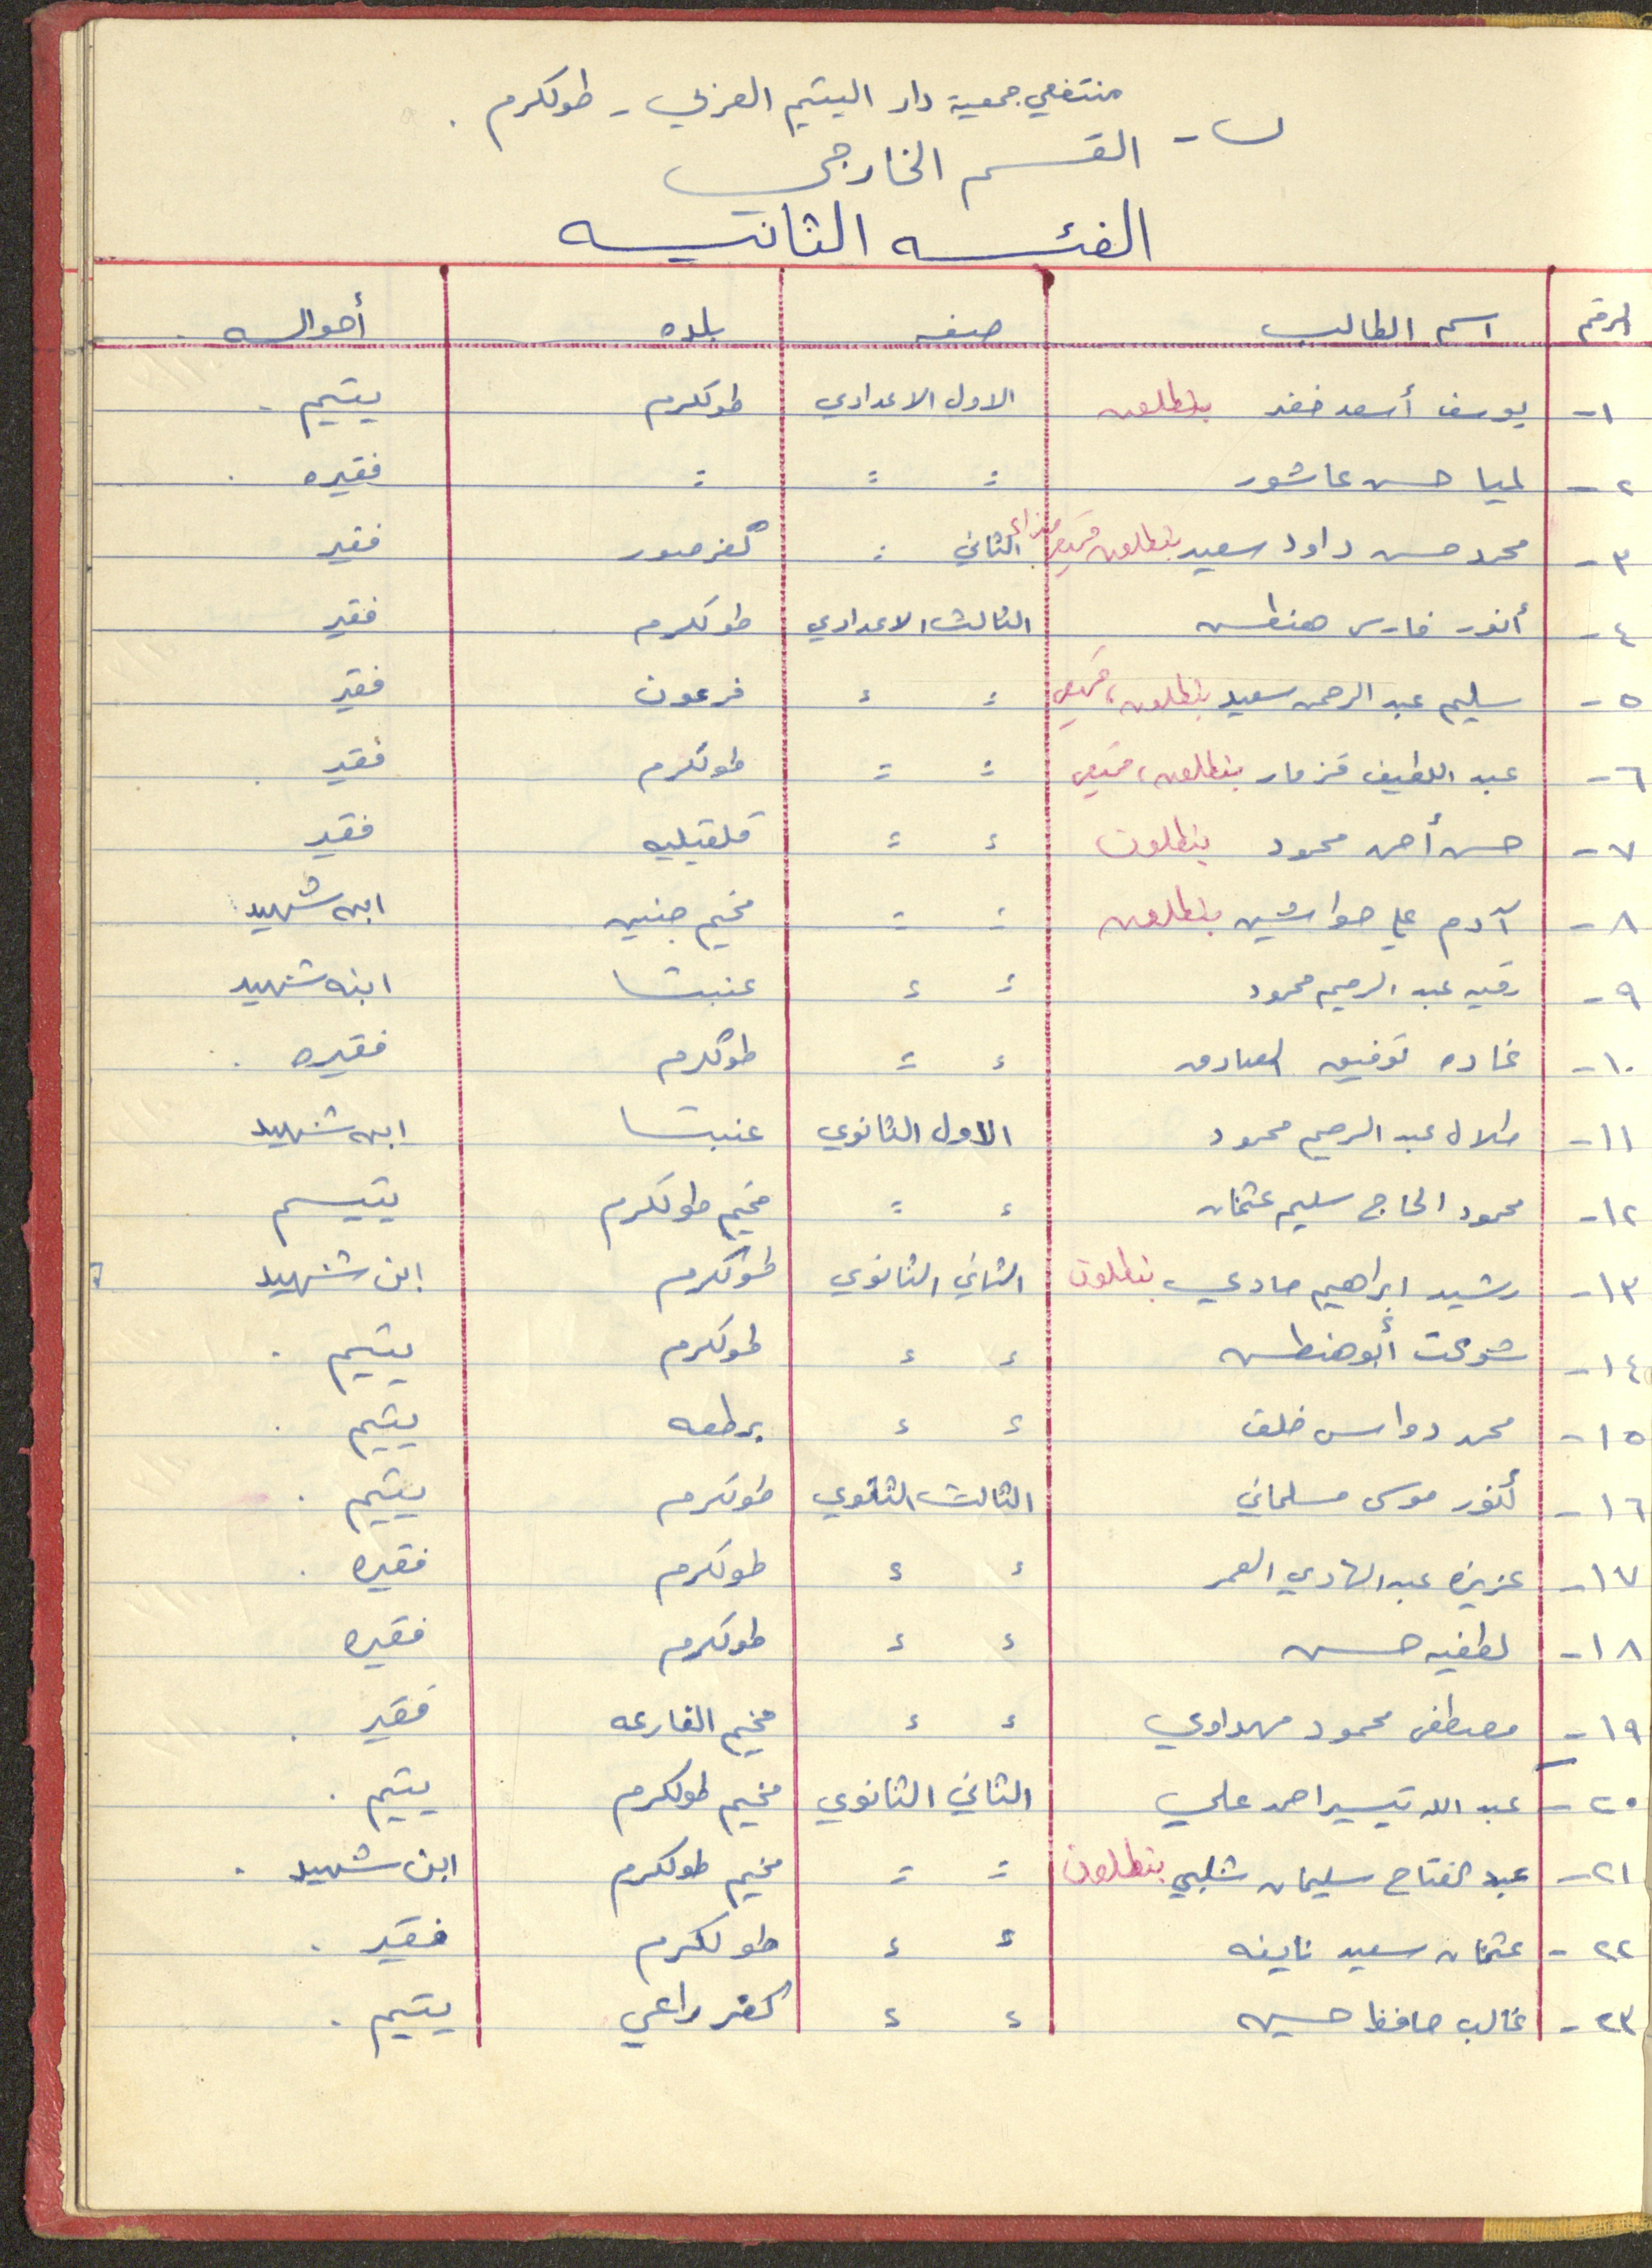 منتفعي جمعية دار اليتيم العربي - طولكرم .
ب - القسم الخارجي
الفئه الثانيه
الرقم اسم الطالب صفه بلده أحواله
١- يوسف أسعد خضر بنطلون الاول الاعدادي طولكرم يتيم .
٢- لميا حسن عاشور = = = فقيره .
٣- محمد حسن داود سعيد بنطلون قميص حذاء الثاني = كفرصور فقير
٤- أنور فارس حنطس الثالث الاعدادي طولكرم فقير
٥- سليم عبد الرحمن سعيد بنطلون، قميص = = فرعون فقير
٦- عبد اللطيف قزمار بنطلون، قميص = = طولكرم فقير .
٧- حسن أحمد محمود بنطلون = = قلقيليه فقير
٨- آدم علي حواشين بنطلون = = مخيم جنين ابن شهيد
٩- رقيه عبد الرحيم محمود = = عنبتا ابنه شهيد
١٠- غاده توفيق الصادق = = طولكرم فقيره .
١١- طلال عبد الرحيم محمود الاول الثانوي عنبتا ابن شهيد
١٢- محمود الحاج سليم عثمان = = مخيم طولكرم يتيم
١٣- رشيد ابراهيم حادي بنطلون الثاني الثانوي طولكرم ابن شهيد
١٤- شوكت أبو حنطس = = طولكرم يتيم .
١٥- محمد دواس خلف = = برطعه يتيم .
١٦- أنور موسى مسلماني الثالث الثانوي طولكرم يتيم .
١٧- عزيزه عبد الهادي العمر = = طولكرم فقيره .
١٨- لطفيه حسن = = طولكرم فقيره
١٩- مصطفى محمود مهداوي = = مخيم الفارعه فقير .
٢٠- عبد الله تيسير احمد علي الثاني الثانوي مخيم طولكرم يتيم .
٢١- عبد الفتاح سليمان شلبي بنطلون = = مخيم طولكرم ابن شهيد .
٢٢- عثمان سعيد نايفه = = طولكرم فقير .
٢٣- غالب حافظ حسين = = كفر راعي يتيم .